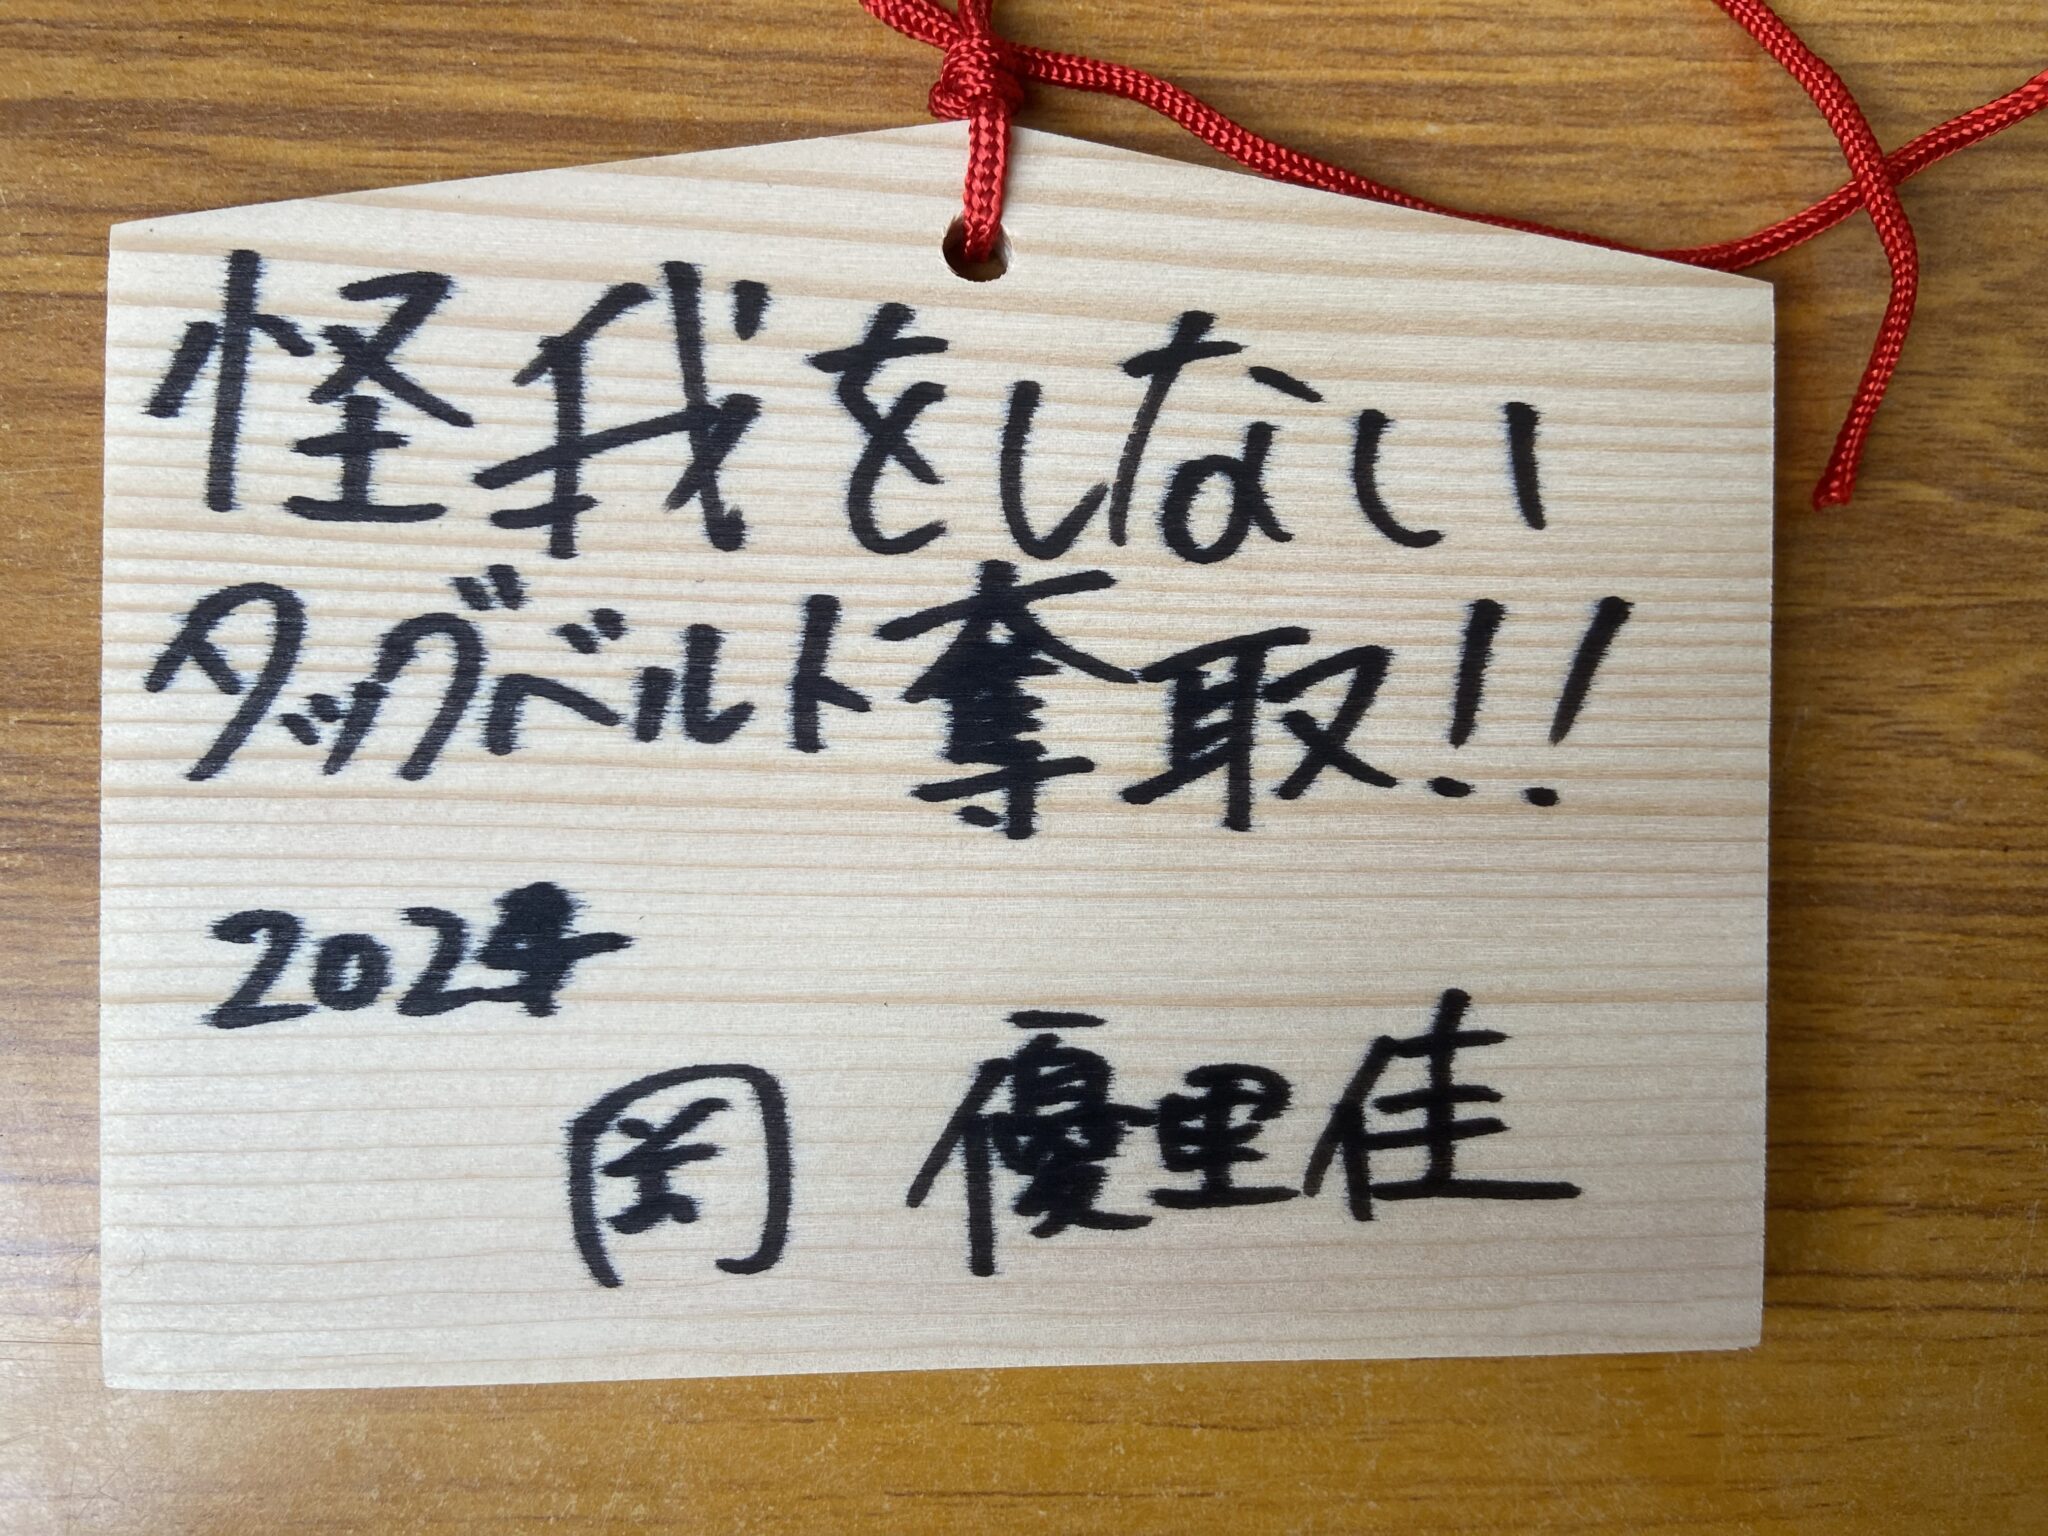 怪我をしない
タッグベルト奪取!!
2024
岡 優里佳